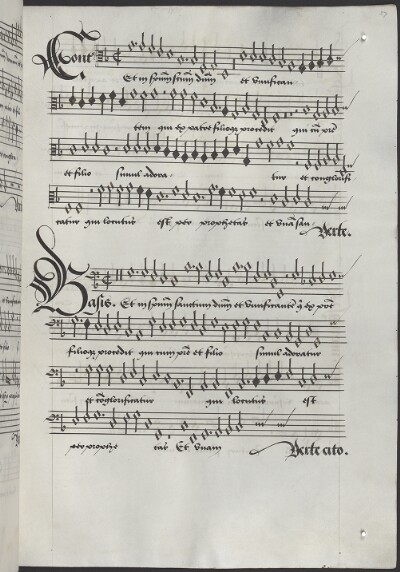 Cont
Et in spm̄ sctm̄ dnm̄ et vivifican
tem qui ex patre filioq3 procedit qui cū pre
et filio simul adora tur et conglorifi
catur qui locutus est per prophetas et unā san
Verte.
Basis. Et in spm̄ sanctum dnm̄ et vivificantem q ex pre
filioq3 procedit qui cum pre et filio simul adoratur
et cōglorificatur qui locutus est
per prophe tas Et unam Verte cito.